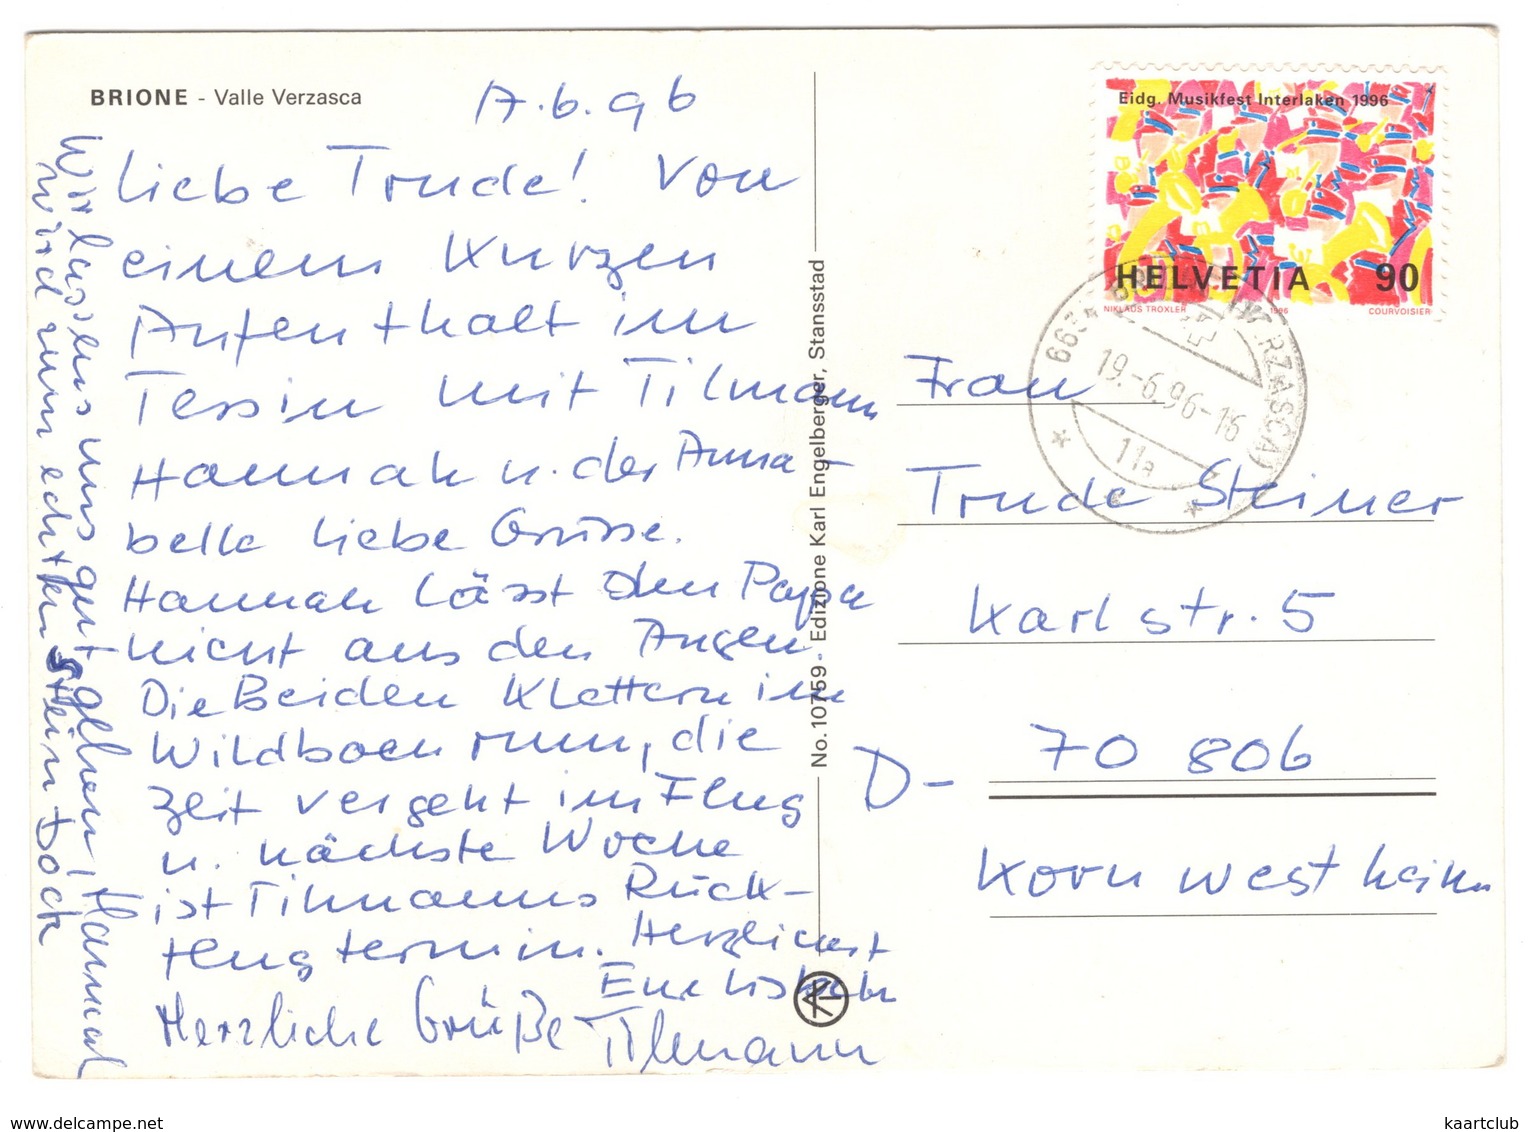 BRIONE - Valle Verzasca
17.6.96
Liebe Trude! Von
einem kurzen
Aufenthalt im
Tessin mit Tilmann
Hannah u. der Anna-
belle liebe Grüsse.
Hannah lässt den Papa
nicht aus den Augen.
Die Beiden klettern im
Wildbach rum, die
Zeit vergeht im Flug
u. nächste Woche
ist Tilmanns Rück-
flug termin. Herzlichst
Eure Lisbeth
Herzliche Grüße Tilmann
Wir lassens uns gut gehen! Hannah
wird zum echten Steinbock
No. 10759 - Edizione Karl Engelberger, Stansstad
Eidg. Musikfest Interlaken 1996
HELVETIA 90
NIKLAUS TROXLER 1996 COURVOISIER
19.-6.96-16
11a
Frau
Trude Steiner
Karlstr. 5
D- 70 806
Kornwestheim
www.delcampe.net
kaartclub